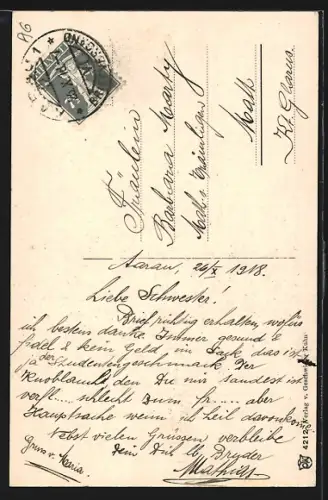 86
AARAU 1
Fräulein
Barbara Marty
Matt
Kt. Glarus
Aarau, 26/X 1918.
Liebe Schwester!
Brief richtig erhalten, wofür
ich bestens danke. Immer gesund &
fidel & kein Geld im Sack das ist
der Studentengeschmack. Der
Knoblauch den Du mir sandtest ist
verfl... schlecht zum fr... aber
Hauptsache wenn ich heil davonkomme
Nebst vielen Grüssen verbleibe
Dein Dich lb. Bruder
Mathias
Gruss v. Maria.
4212 Verlag v. Kuhn